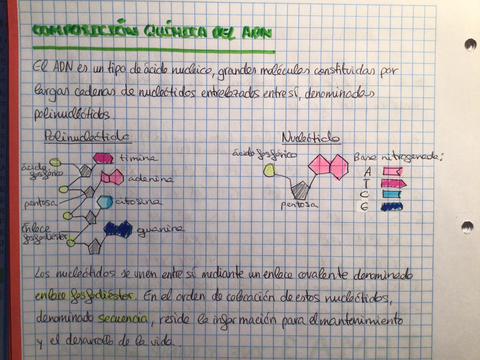 COMPOSICIÓN QUÍMICA DEL ADN
El ADN es un tipo de ácido nucleico, grandes moléculas constituidas por
largas cadenas de nucleótidos entrelazados entre sí, denominadas
polinucleótidos.
Polinucleótido
timina
ácido fosfórico
adenina
pentosa
citosina
Enlace fosfodiéster
guanina
Nucleótido
ácido fosfórico
pentosa
Base nitrogenada:
A
T
C
G
Los nucleótidos se unen entre sí mediante un enlace covalente denominado
enlace fosfodiéster. En el orden de colocación de estos nucleótidos,
denominado secuencia, reside la información para el mantenimiento
y el desarrollo de la vida.